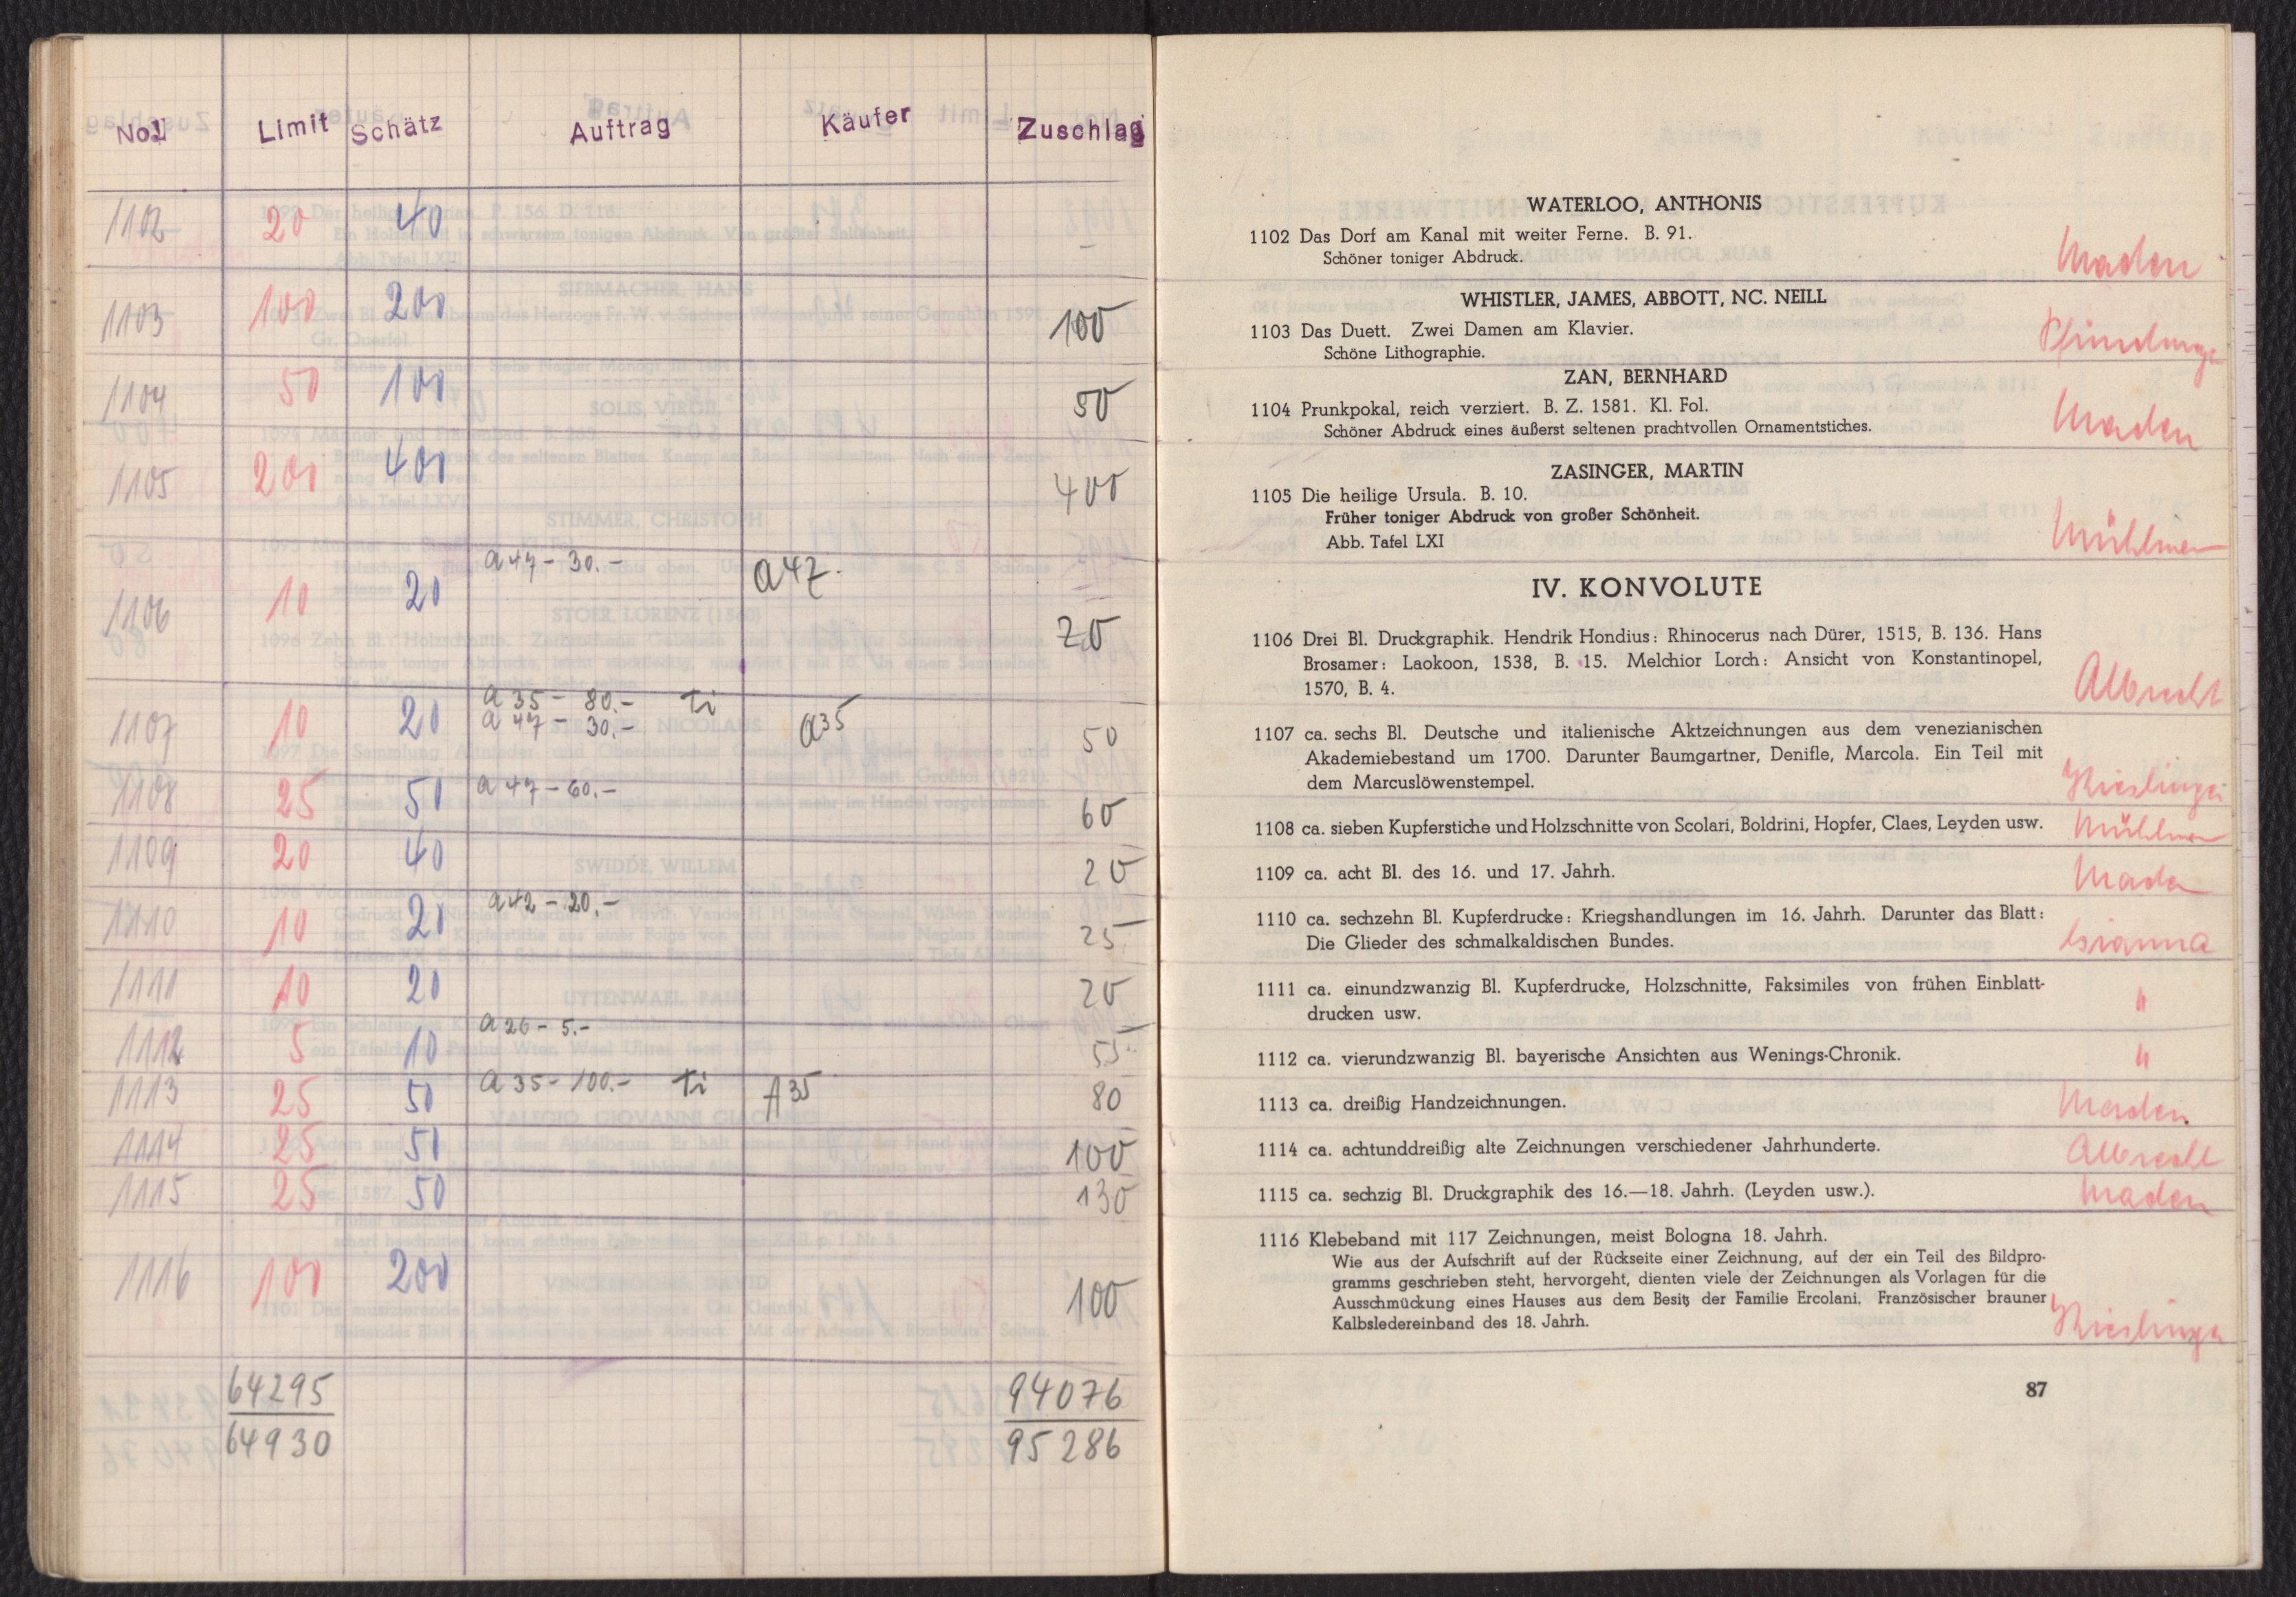 No. Limit Schätz Auftrag Käufer Zuschlag
1102 20 40 –
1103 100 200 100
1104 50 100 50
1105 200 400 400
1106 10 20 a 47 – 30.– a 47. 20
1107 10 20 a 35 – 80.– ti a 35 50
a 47 – 30.–
1108 25 50 a 47 – 60.– 60
1109 20 40 20
1110 10 20 a 42 – 20.– 25
1111 10 20 20
1112 5 10 a 26 – 5.– 55
1113 25 50 a 35 – 100.– ti A 35 80
1114 25 50 100
1115 25 50 130
1116 100 200 100
64295 94076
64930 95286
WATERLOO, ANTHONIS
1102 Das Dorf am Kanal mit weiter Ferne. B. 91.
Schöner toniger Abdruck.
Maden
WHISTLER, JAMES, ABBOTT, NC. NEILL
1103 Das Duett. Zwei Damen am Klavier.
Schöne Lithographie.
ZAN, BERNHARD
1104 Prunkpokal, reich verziert. B. Z. 1581. Kl. Fol.
Schöner Abdruck eines äußerst seltenen prachtvollen Ornamentstiches.
Maden
ZASINGER, MARTIN
1105 Die heilige Ursula. B. 10.
Früher toniger Abdruck von großer Schönheit.
Abb. Tafel LXI
IV. KONVOLUTE
1106 Drei Bl. Druckgraphik. Hendrik Hondius: Rhinocerus nach Dürer, 1515, B. 136. Hans
Brosamer: Laokoon, 1538, B. 15. Melchior Lorch: Ansicht von Konstantinopel,
1570, B. 4.
Albrecht
1107 ca. sechs Bl. Deutsche und italienische Aktzeichnungen aus dem venezianischen
Akademiebestand um 1700. Darunter Baumgartner, Denifle, Marcola. Ein Teil mit
dem Marcuslöwenstempel.
1108 ca. sieben Kupferstiche und Holzschnitte von Scolari, Boldrini, Hopfer, Claes, Leyden usw.
1109 ca. acht Bl. des 16. und 17. Jahrh.
1110 ca. sechzehn Bl. Kupferdrucke: Kriegshandlungen im 16. Jahrh. Darunter das Blatt:
Die Glieder des schmalkaldischen Bundes.
1111 ca. einundzwanzig Bl. Kupferdrucke, Holzschnitte, Faksimiles von frühen Einblatt-
drucken usw.
"
1112 ca. vierundzwanzig Bl. bayerische Ansichten aus Wenings-Chronik.
"
1113 ca. dreißig Handzeichnungen.
Maden
1114 ca. achtunddreißig alte Zeichnungen verschiedener Jahrhunderte.
Albrecht
1115 ca. sechzig Bl. Druckgraphik des 16.—18. Jahrh. (Leyden usw.).
Maden
1116 Klebeband mit 117 Zeichnungen, meist Bologna 18. Jahrh.
Wie aus der Aufschrift auf der Rückseite einer Zeichnung, auf der ein Teil des Bildpro-
gramms geschrieben steht, hervorgeht, dienten viele der Zeichnungen als Vorlagen für die
Ausschmückung eines Hauses aus dem Besitz der Familie Ercolani. Französischer brauner
Kalbsledereinband des 18. Jahrh.
87